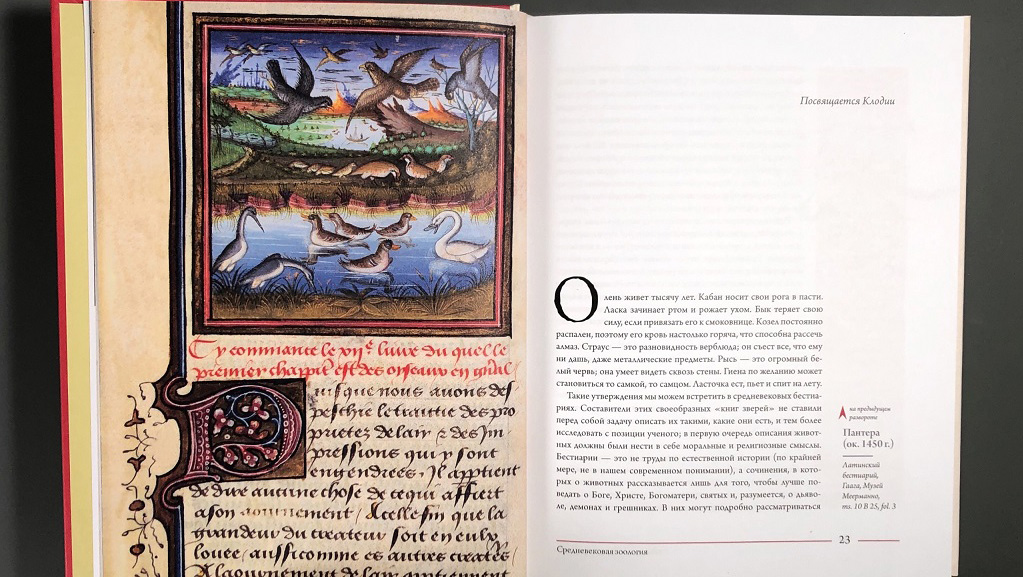 Cy commance le xii^e livre du quel le
premier chappit^e est des oyseaux en g^nāl
Puisque nous avons des
peschie le traittie des pro
prietez de lair & des Im
pressions qui y sont
engendrees, Il appertient
de dire aucune chose de ce qui affiert
a son aournement, A celle fin que la
grandeur du createur soit en eulx
louee, aussi comme es autres creat^es
A laournement de lair appertiennent
Посвящается Клодии
Олень живет тысячу лет. Кабан носит свои рога в пасти.
Ласка зачинает ртом и рожает ухом. Бык теряет свою
силу, если привязать его к смоковнице. Козел постоянно
распален, поэтому его кровь настолько горяча, что способна рассечь
алмаз. Страус — это разновидность верблюда; он съест все, что ему
ни дашь, даже металлические предметы. Рысь — это огромный бе-
лый червь; она умеет видеть сквозь стены. Гиена по желанию может
становиться то самкой, то самцом. Ласточка ест, пьет и спит на лету.
Такие утверждения мы можем встретить в средневековых бестиа-
риях. Составители этих своеобразных «книг зверей» не ставили
перед собой задачу описать их такими, какие они есть, и тем более
исследовать с позиции ученого; в первую очередь описания живот-
ных должны были нести в себе моральные и религиозные смыслы.
Бестиарии — это не труды по естественной истории (по крайней
мере, не в нашем современном понимании), а сочинения, в кото-
рых о животных рассказывается лишь для того, чтобы лучше по-
ведать о Боге, Христе, Богоматери, святых и, разумеется, о дьяво-
ле, демонах и грешниках. В них могут подробно рассматриваться
на предыдущем
развороте
Пантера
(ок. 1450 г.)
Латинский
бестиарий,
Гаага, Музей
Меерманно,
ms. 10 B 25, fol. 3
Средневековая зоология
23